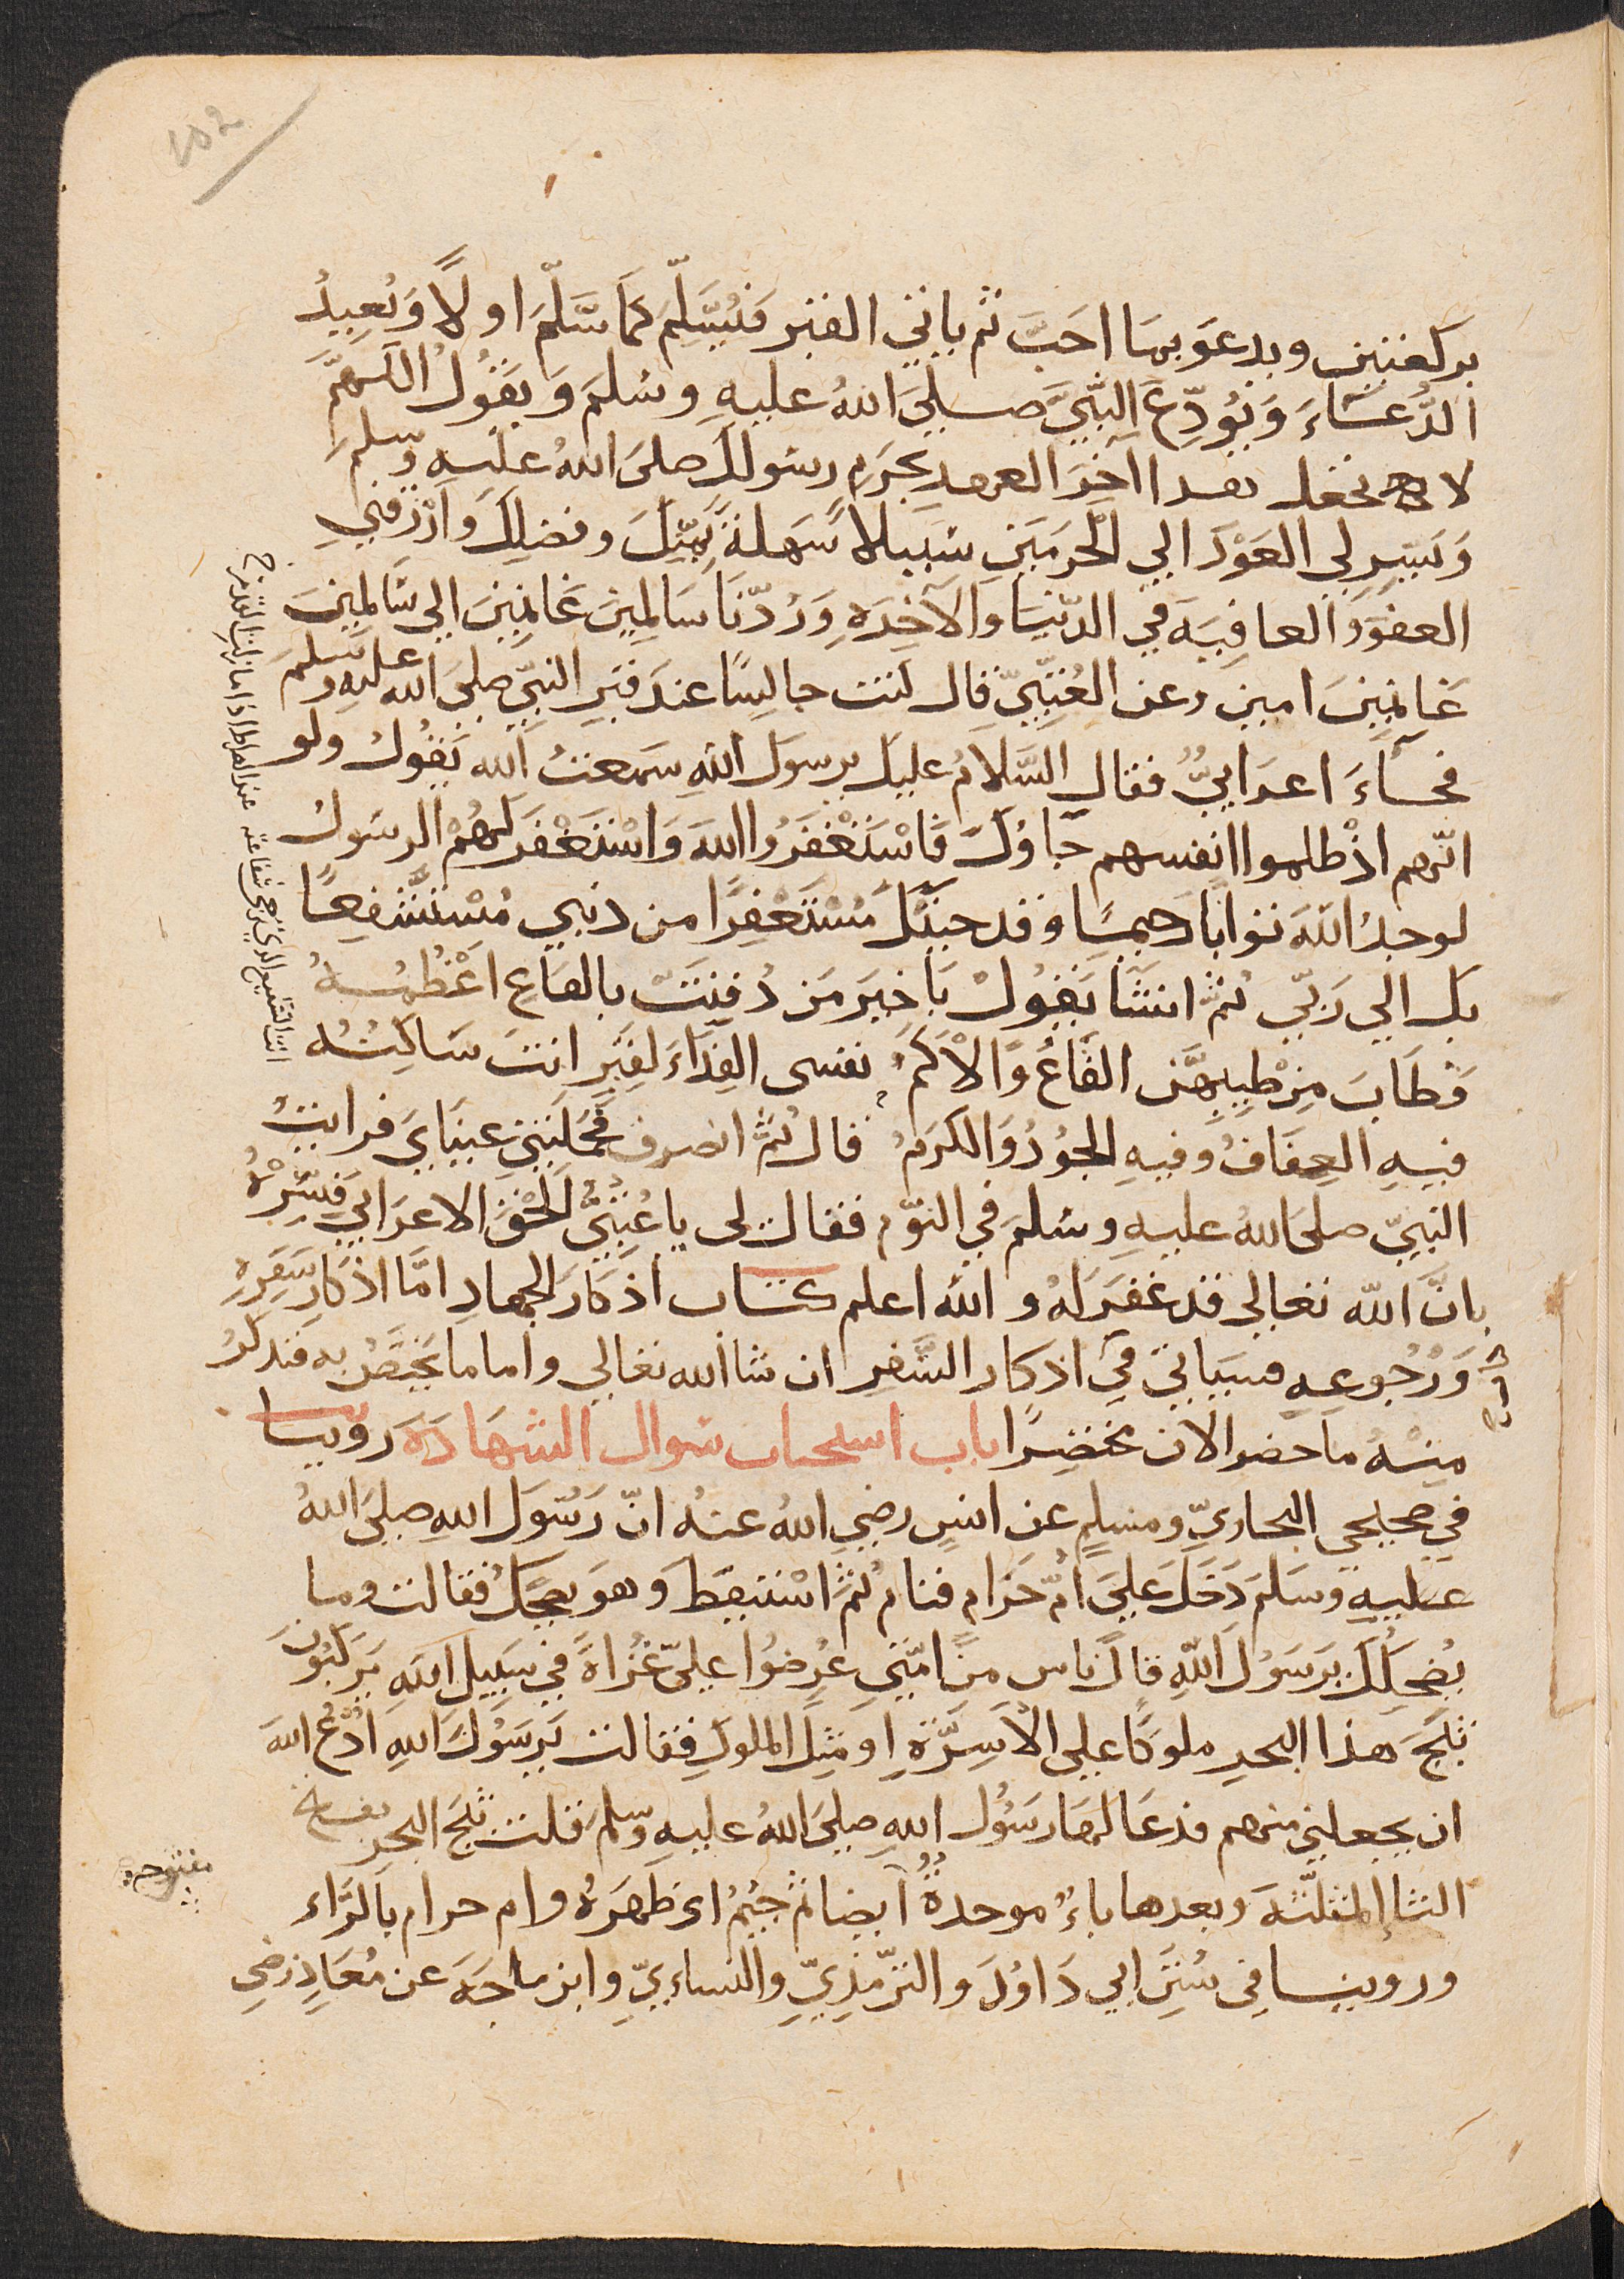 بركعتين ويدعو بما احَبّ ثم ياتي القبر فيُسَلِّم كما سَلَّمَ اولًا ويُعِيدُ
الدُّعَاءَ وَيُوَدِّعَ النَّبِيَّ صلى اللهُ عليهِ وسلمَ وَيقولُ اللهمّ
لا تجعل هذا آخِرَ العهد بحَرَمِ رسولك صلى اللهُ عليهِ وسلمَ
وَيَسِّر لي العَوْدَ الي الحَرمَينِ سَبيلا سَهلة بِمَنِّكَ وفضلِكَ وَارْزقني
العفوَ والعافِيَه في الدّنيَا والآخِرَه وَرُدّنَا سَالمِينَ غَانمِينَ الي سَالمِينَ
غَانِمِينَ امين وعن العُتبِيّ قال كنت جالِسًا عندَ قبرِ النبيّ صلى الله عليهِ وسلمَ
فجآءَ اعرَابيٌّ فقال السَّلامُ عليك يرسولَ اللهِ سَمعتُ الله يَقُولُ ولو
انّهم اذْ ظلموا انفسهم جَاؤكَ فَاسْتَغْفَرُوا اللهَ وَاسْتَغْفَرَ لَهُمْ الرسَولُ
لوجدُ اللهَ توابًا رحيمًا وقد جيتكَ مُسْتَغْفِرًا من ذنبي مُسْتَشْفِعًا
بك الي رَبّي ثمَّ انشَا يَقولْ يَا خيرَ مَن دُفِنَتْ بالقاعِ اعْظُمُهُ
فَطَابَ مِنْ طِيبِهِنّ القَاعُ وَالاكَمُ نفسى الفِدَاءَ لِقبرِ انتَ سَاكِنُهُ
فيهِ العِفَافُ وفيهِ الجُودُ وَالكرَمُ قال ثمَّ انصرف فحَمَلَتني عينَايَ فرايتُ
النبِيّ صلى اللهُ عليهِ وسَلمَ في النوْم فقال لى يا عُتْبِيُّ الحَقِ الاعرَابيَ فبَشِّرْهُ
بانَّ اللّه تعالي قد غفرَ لهُ و اللهُ اعلم كتاب اذكَارَ الجهادِ امَّا اذكار سَفَرِهِ
وَرُجُوعِهِ فسَيَاتي فى اذكار السَّفرِ ان شا الله تعالي واما ما يَختَصُّ به فنذكرُ
مِنْهُ ما حضر الان مختصرًا باب استحباب سوال الشهَادَه روينا
في صحيحي البخاريِّ ومسلمٍ عن انسٍ رضيِ اللهُ عنهُ انّ رَسُولَ اللهِ صلى اللهُ
عليهِ وسَلمَ دَخَلَ علىَ امّ حَرامٍ فنام ثمّ اسْتيقظ وَهوَ يضحكُ فقالت وما
يُضحِكُكَ يرَسُولَ اللهِ قالَ ناس من امّتي عُرِضُوا عليّ غُزاةً في سَبِيل اللهِ يَركبُونَ
ثبَجَ هذا البحرِ ملوكًا على الاسِرَّةِ او مثِلَ الملوكِ فقالت يَرسَوُلَ اللهِ ادْعُ اللهَ
ان يجعلني منهم فدعَا لهَا رسَوُل اللهِ صلىَ اللهُ عليهِ وسلمَ قلت ثبَج البحر بفتح
الثا المثلثه وبعدها باءٌ موحدةٌ ايضا ثم جيمُ اى ظَهرَهُ وام حرام بالرّاء
وروينا فِى سُننِ ابي دَاوُدَ والترّمِذيّ والنساءيّ وابن ماجَه عن مُعَاذِ رَضيِ
انت الشفيع الذي ترجى شفاعته عند الصراط اذا ما زلت القدم
مفتوحه